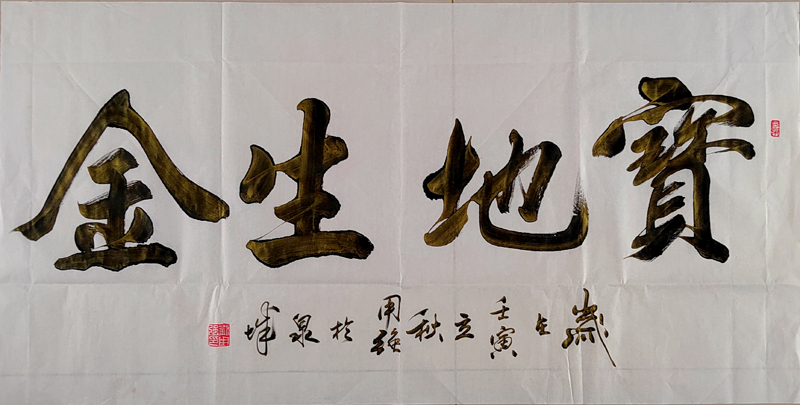 寶地生金
歲在壬寅立秋用強於泉城